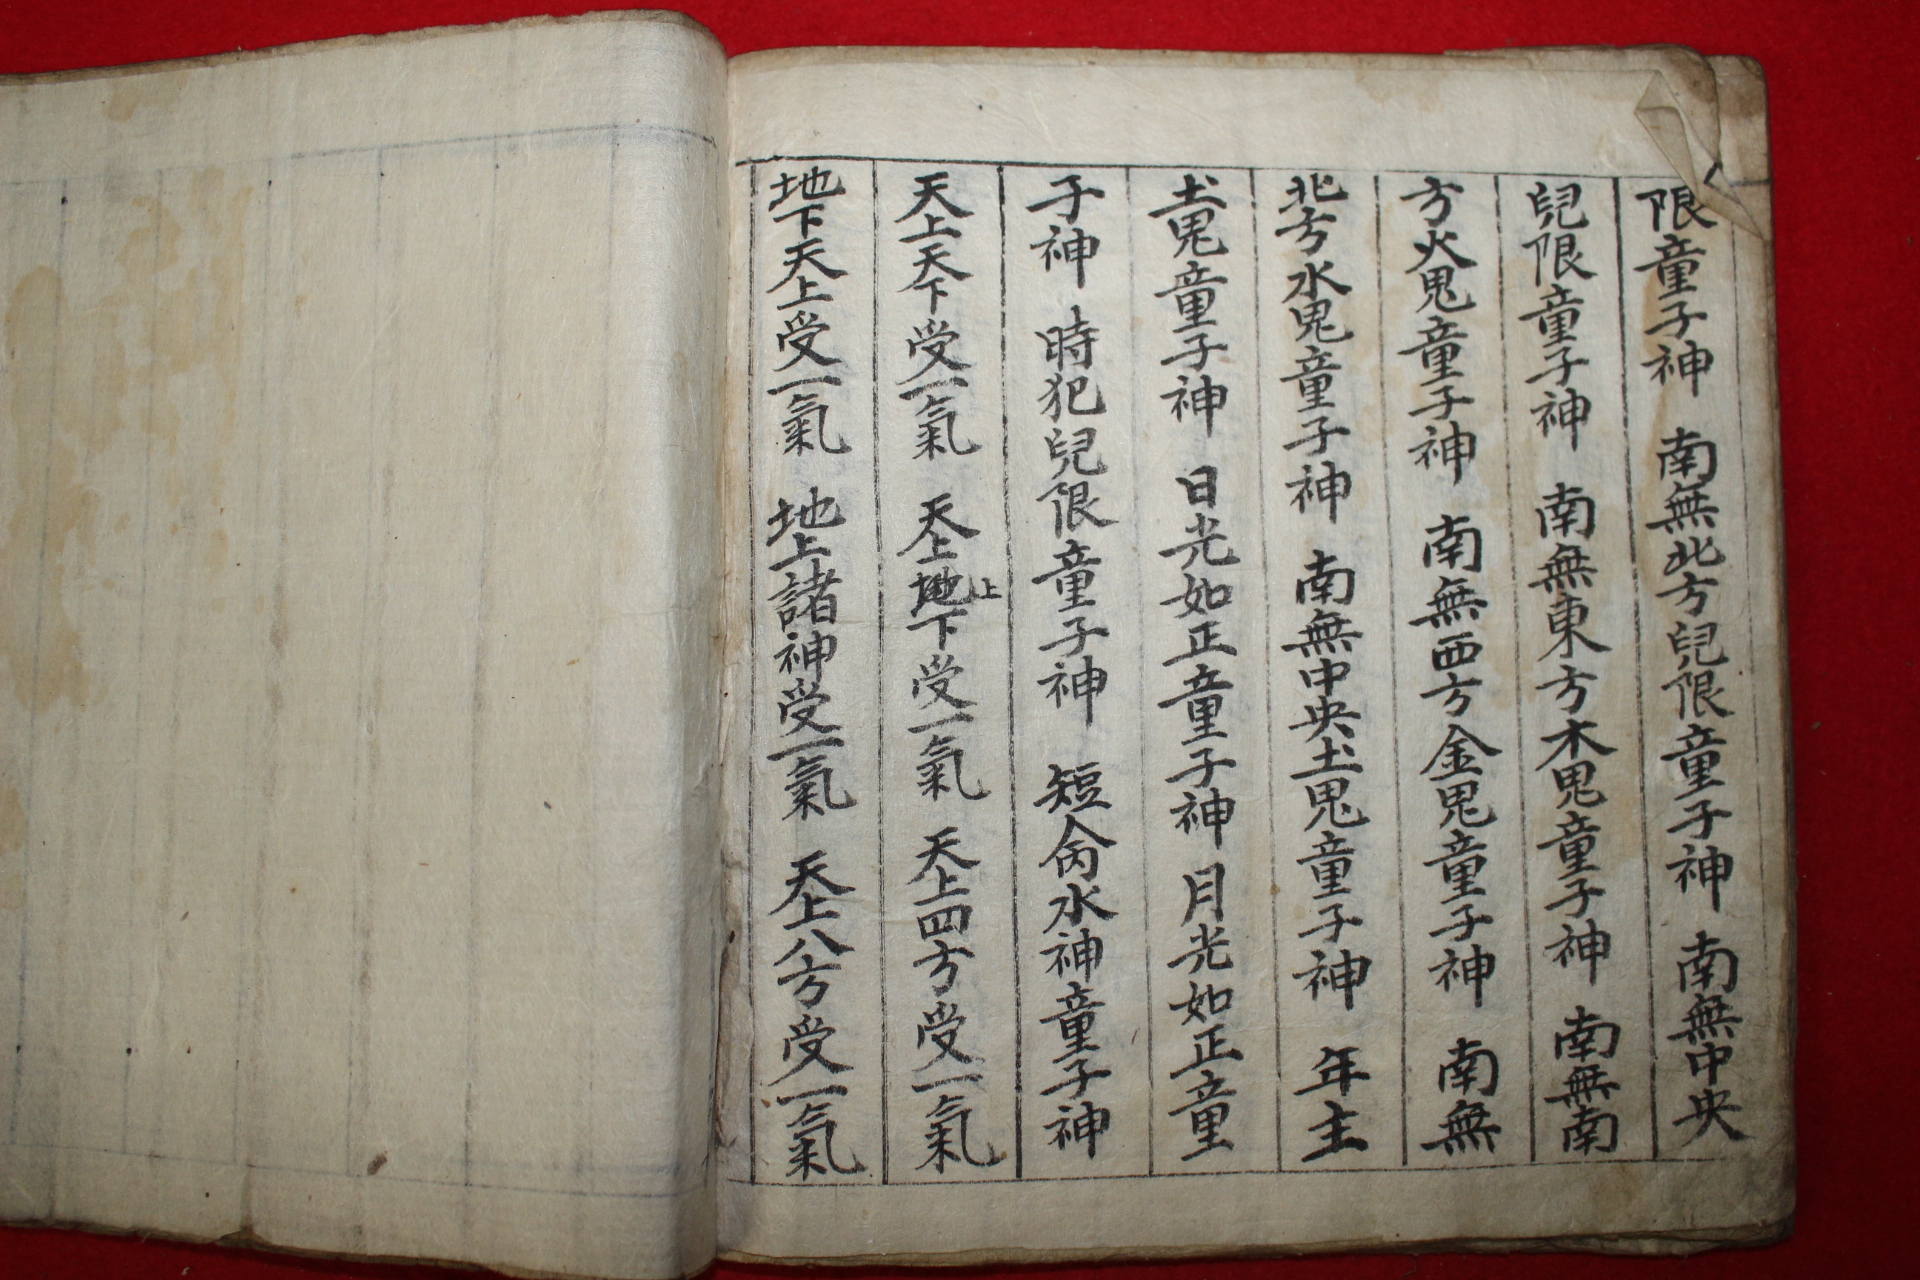 限童子神 南無北方兒限童子神 南無中央
兒限童子神 南無東方木鬼童子神 南無南
方火鬼童子神 南無西方金鬼童子神 南無
北方水鬼童子神 南無中央土鬼童子神 年主
土鬼童子神 日光如正童子神 月光如正童
子神 時犯兒限童子神 短命水神童子神
天上天下受一氣 天上地上下受一氣 天上四方受一氣
地下天上受一氣 地上諸神受一氣 天上八方受一氣